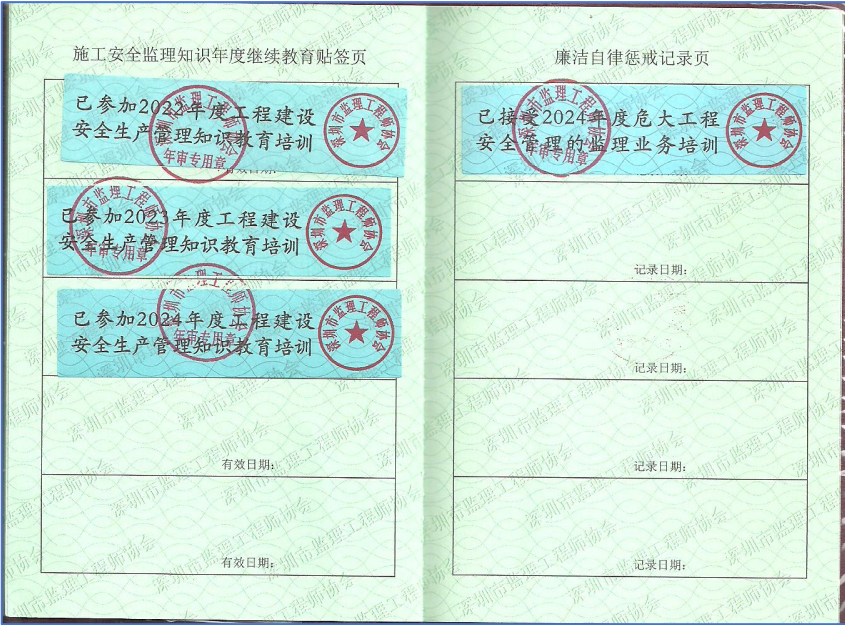 施工安全监理知识年度继续教育贴签页
已参加2022年度工程建设
安全生产管理知识教育培训
深圳市监理工程师协会
深圳市监理工程师协会
年审专用章
有效日期：
已参加2023年度工程建设
安全生产管理知识教育培训
深圳市监理工程师协会
深圳市监理工程师协会
年审专用章
已参加2024年度工程建设
安全生产管理知识教育培训
深圳市监理工程师协会
深圳市监理工程师协会
年审专用章
有效日期：
有效日期：
廉洁自律惩戒记录页
已接受2024年度危大工程
安全管理的监理业务培训
深圳市监理工程师协会
深圳市监理工程师协会
年审专用章
记录日期：
记录日期：
记录日期：
记录日期：
深圳市监理工程师协会